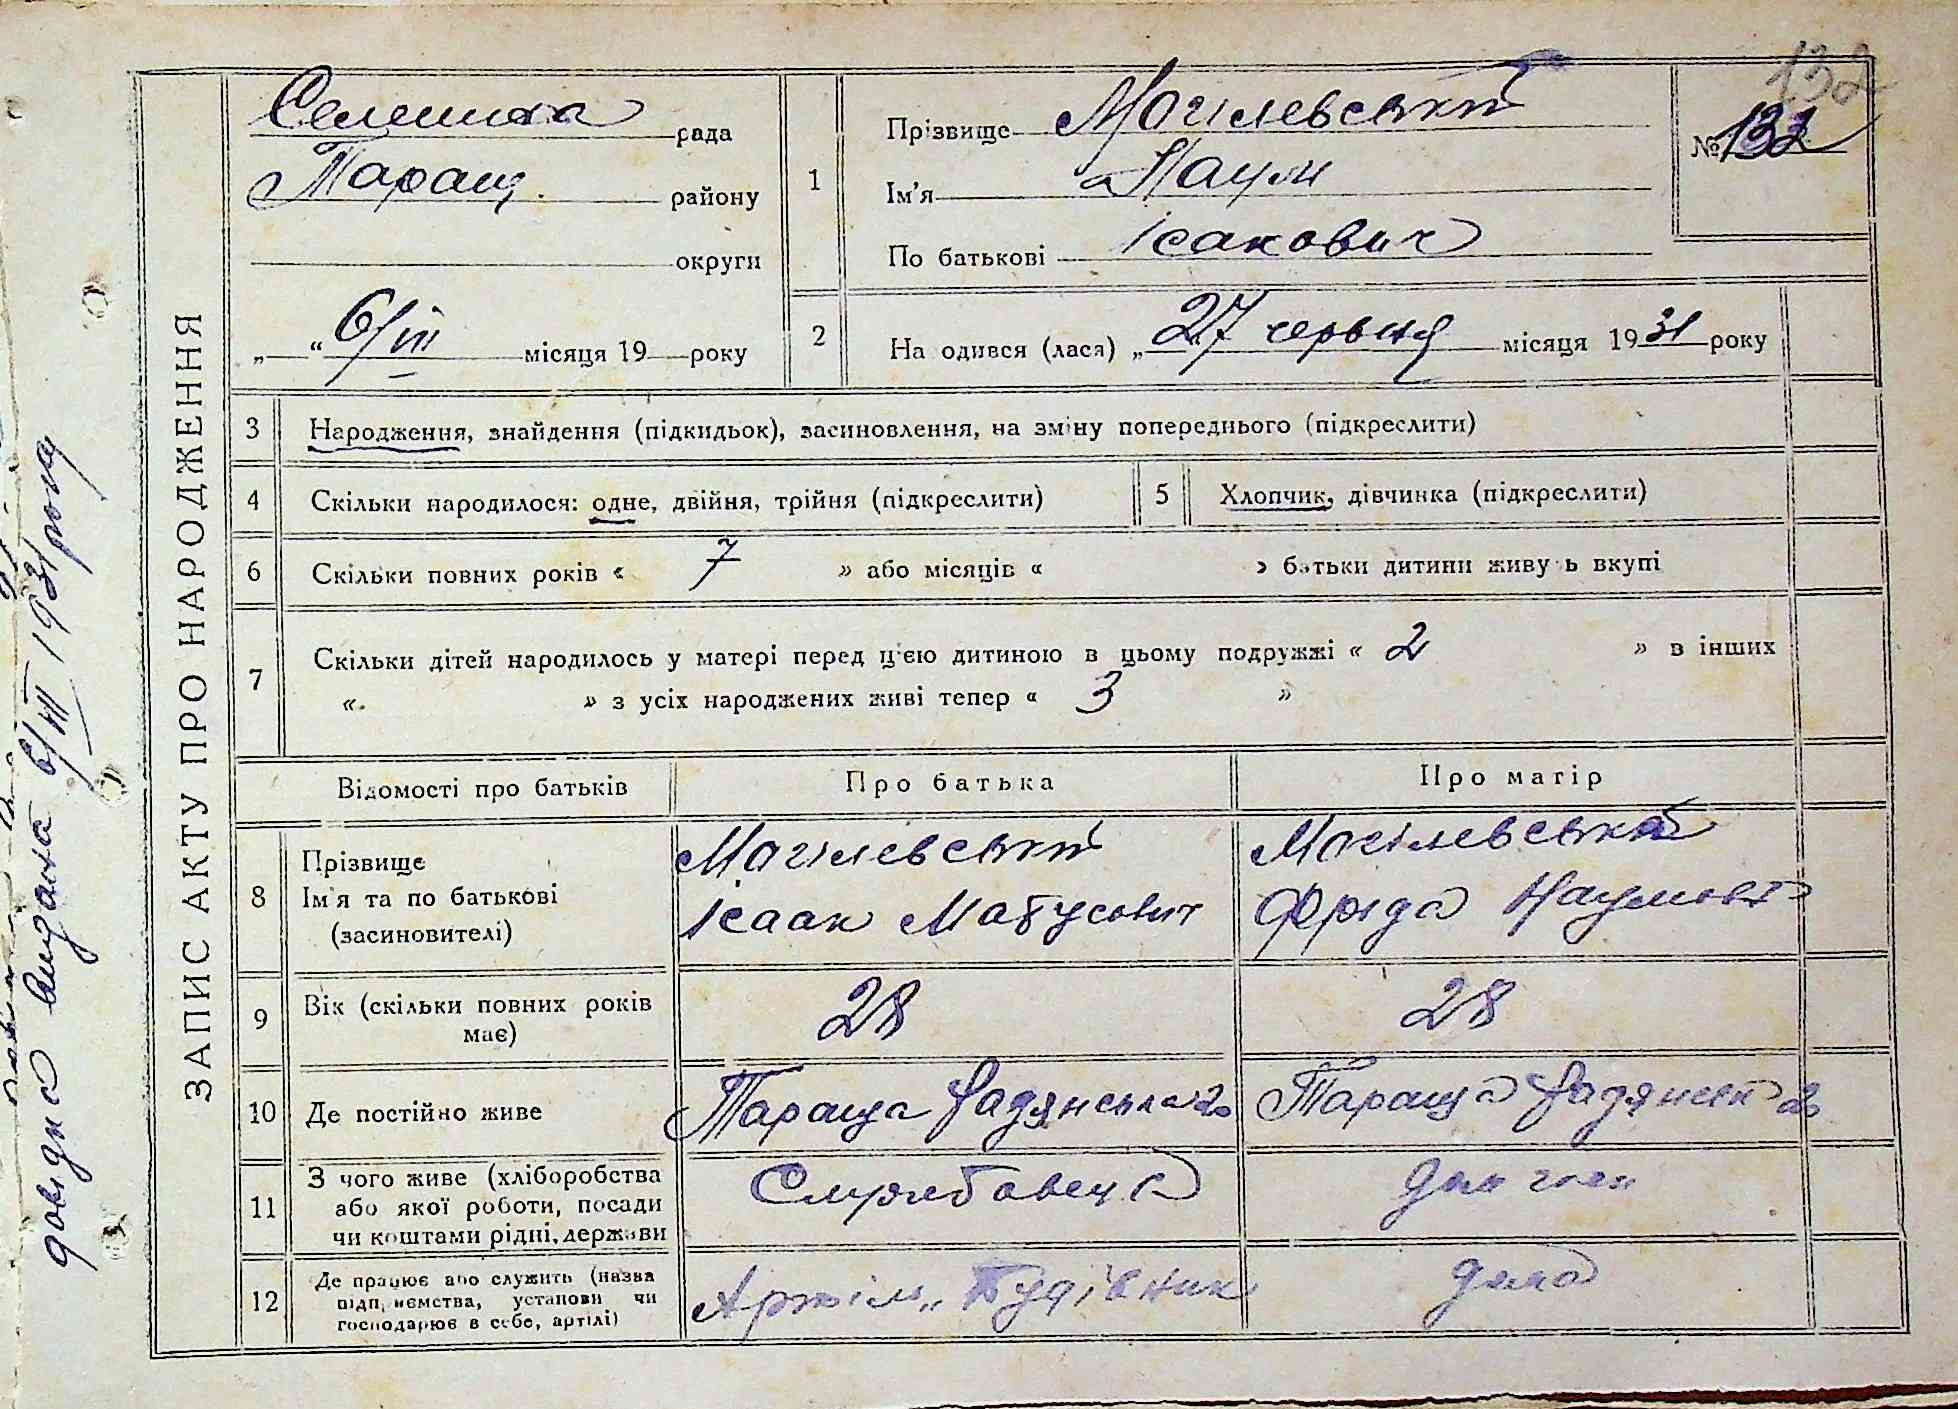 132
Селешина рада
Таращ. району
округи
„ “ 6/VII місяця 19 року
1
Прізвище Могілевський
Ім'я Наум
По батькові Ісакович
№ 132
2
На одився (лася) „ 27 червня місяця 1931 року
ЗАПИС АКТУ ПРО НАРОДЖЕННЯ
3 Народження, знайдення (підкидьок), засиновлення, на зміну попереднього (підкреслити)
4 Скільки народилося: одне, двійня, трійня (підкреслити)
5 Хлопчик, дівчинка (підкреслити)
6 Скільки повних років « 7 » або місяців « » батьки дитини живу ь вкупі
7 Скільки дітей народилось у матері перед цією дитиною в цьому подружжі « 2 » в інших
« » з усіх народжених живі тепер « 3 »
Відомості про батьків Про батька Про матір
8 Прізвище
Ім'я та по батькові
(засиновителі)
Могілевський
Ісаак Матусович
Могілевська
Фріда Наумовн
9 Вік (скільки повних років
має)
28
28
10 Де постійно живе
Тараща Радянська 20
Тараща Радянськ 20
11 З чого живе (хліборобства
або якої роботи, посади
чи коштами рідні, держави
Службовець
12 Де працює або служить (назва
підп, иємства, установи чи
господарює в себе, артілі)
Артіль „Будівник
дома
довідка видана 6/VII 1931 року